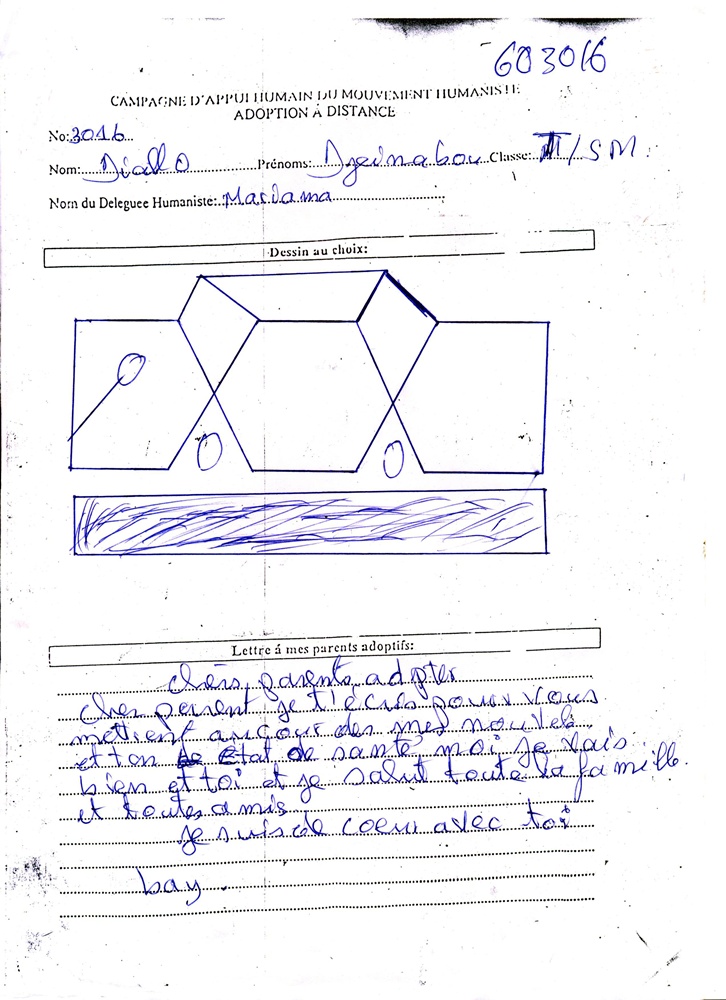 603016
CAMPAGNE D'APPUI HUMAIN DU MOUVEMENT HUMANISTE
ADOPTION À DISTANCE
No:3016
Nom: Diallo Prénoms: Djeinabou Classe: /SM
Nom du Deleguee Humaniste: Mariama
Dessin au choix:
Lettre á mes parents adoptifs:
chèrs parents adpter
cher perent je t'écris pour vous
mettent au cour des mes nouvels
et ton état de santé moi je vais
bien et toi et je salut toute la famille
et toutes amis
je suis de coeur avec toi
bay